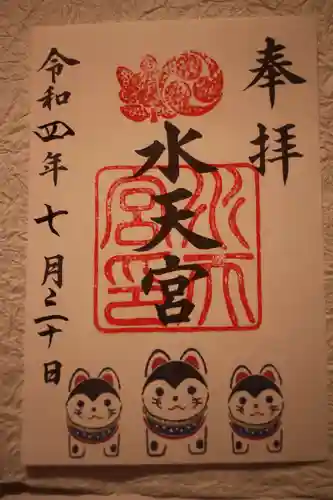 奉拝
水天宮
令和四年七月二十日
水天宮印